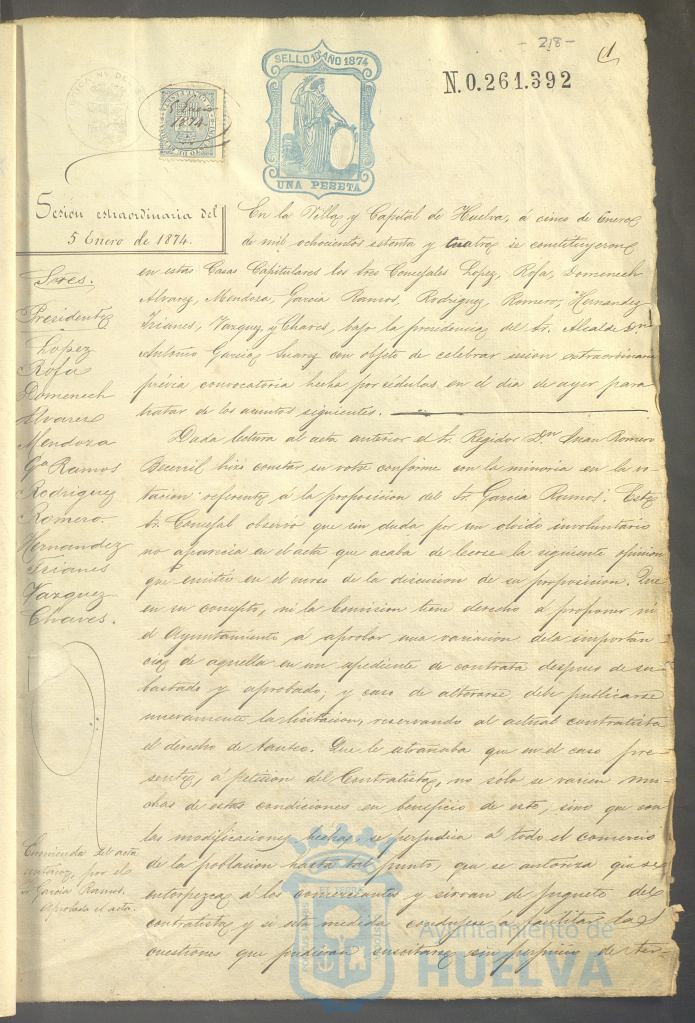 - 218 -
1
SELLO 10º AÑO 1874
UNA PESETA
N.0.261.392
5 Enero
1874
Sesion estraordinaria del
5 Enero de 1874.
Sres.
Presidente
López
Rofa
Domenech
Alvarez
Mendoza
Gª Ramos
Rodriguez
Romero.
Hernandez
Trianes
Vazquez
Chaves.
En la Villa y Capital de Huelva, á cinco de Enero
de mil ochocientos setenta y cuatro se constituyeron
en estas Casas Capitulares los Sres Concejales Lopez, Rofa, Domenech
Alvarez, Mendoza, Garcia Ramos, Rodriguez, Romero, Hernandez
Trianes, Vazquez y Chaves, bajo la presidencia del Sr. Alcalde Dn
Antonio Garcia Suarez con objeto de celebrar sesion extraordinaria
prévia convocatoria hecha por cédulas en el dia de ayer para
tratar de los asuntos siguientes.
Dada lectura al acta anterior el Sr. Regidor Dn Juan Romero
Becerril hizo constar su voto conforme con la minoria en la vo-
tacion referente á la proposicion del Sr Garcia Ramos. Este
Sr. Concejal observó que sin duda por un olvido involuntario
no aparecia en el acta que acaba de leerse la siguiente opinion
que emitió en el curso de la discusion de su proposicion. Que
en su concepto, ni la Comision tiene derecho á proponer ni
el Ayuntamiento á aprobar una variacion de la importan-
cia de aquella en un espediente de contrata despues de su-
bastado y aprobado, y caso de alterarse, debe publicarse
nuevamente la licitacion, reservando al actual contratista
el derecho de tanteo. Que le estrañaba que en el caso pre-
sente, á peticion del Contratista, no sólo se varien mu-
chas de estas condiciones en beneficio de este, sino que con
las modificaciones hechas, se perjudica á todo el comercio
de la poblacion hasta tal punto, que se autoriza que se
entorpezca á los comerciantes y sirvan de juguete del
contratista y si esta medida condujese á facilitar las
cuestiones que pudieran suscitarse sin perjuicio de ter-
Enmienda del acta
anterior, por el
Sr Garcia Ramos.
Aprobada el acta.
Ayuntamiento de
HUELVA